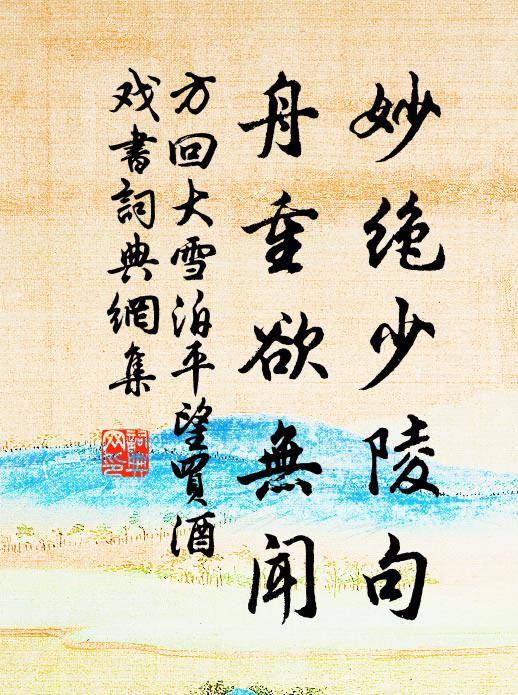 妙絶少陵句
舟重欲無聞
方回大雪泊平望買酒
戏書詞典網集